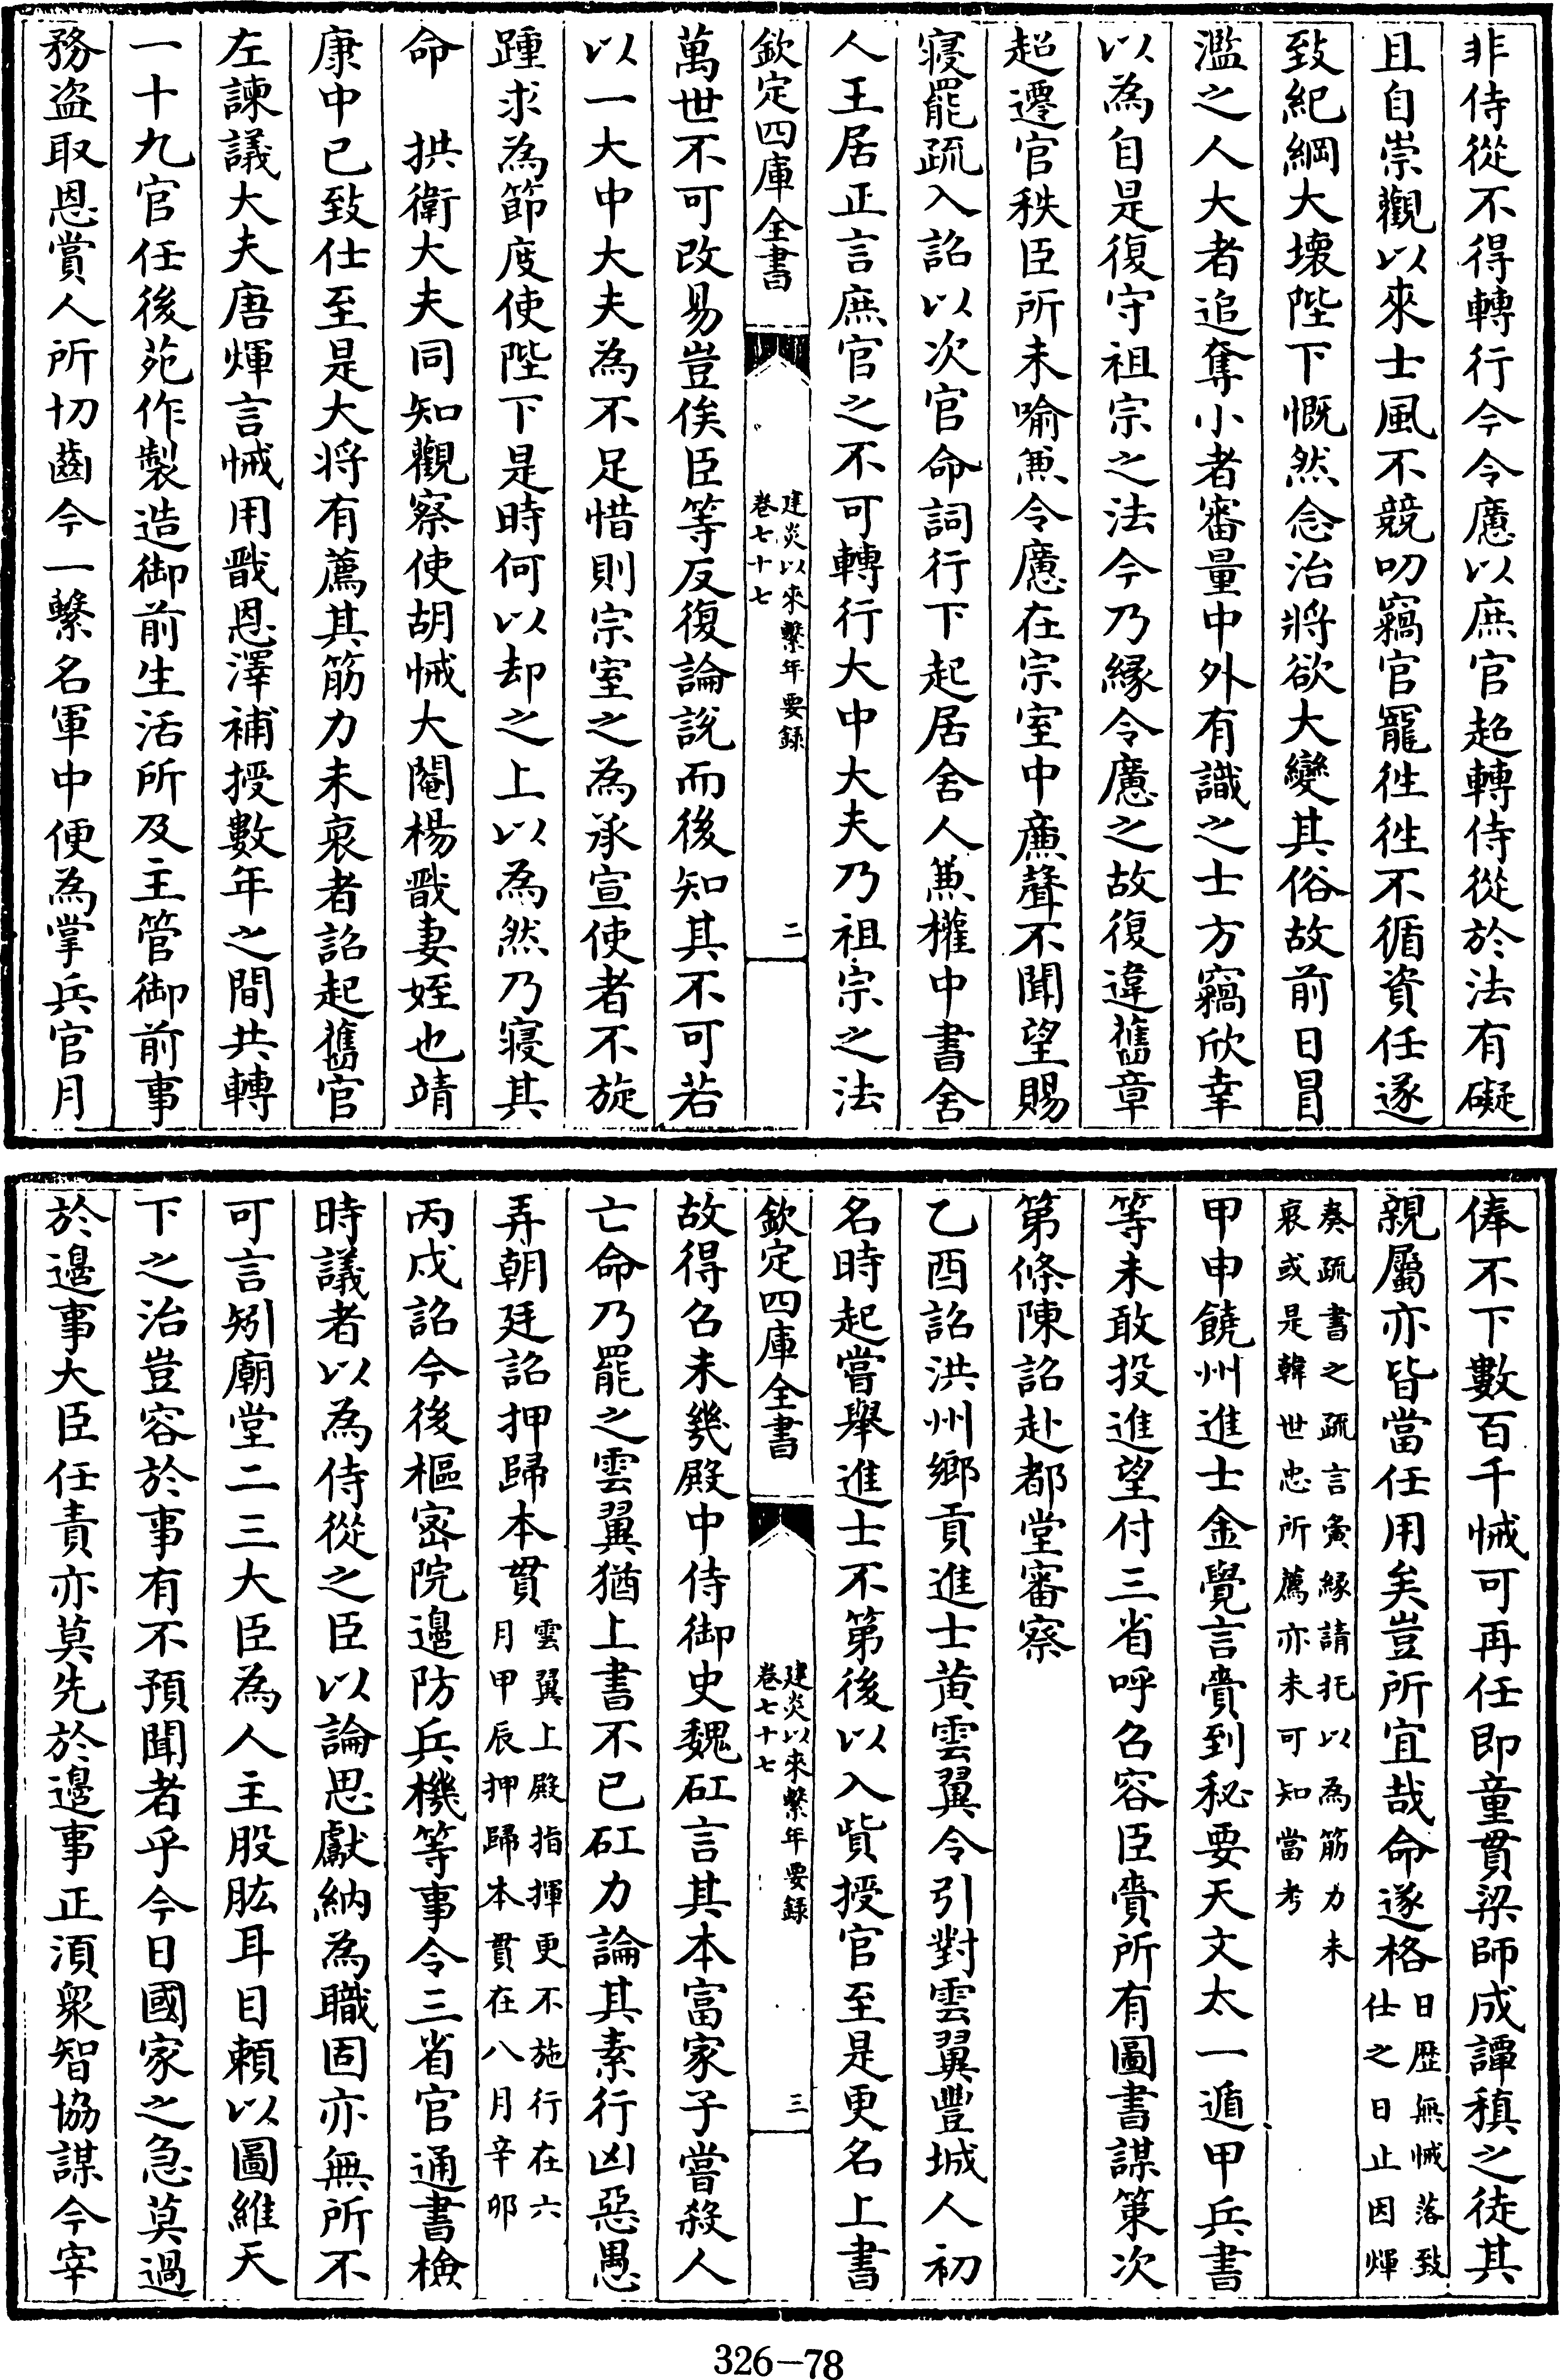 非侍從不得轉行今令懬以庶官超轉侍從於法有礙
且自崇觀以來士風不競叨竊官寵徃徃不循資任遂
致紀綱大壞陛下慨然念治將欲大變其俗故前日冒
濫之人大者追奪小者審量中外有識之士方竊欣幸
以為自是復守祖宗之法今乃縁令懬之故復違舊章
超遷官秩臣所未喻兼令懬在宗室中亷聲不聞望賜
寢罷疏入詔以次官命詞行下起居舍人兼權中書舍
人王居正言庶官之不可轉行大中大夫乃祖宗之法
欽定四庫全書
建炎以來繫年要録
卷七十七
二
萬世不可改易豈俟臣等反復論説而後知其不可若
以一大中大夫為不足惜則宗室之為承宣使者不旋
踵求為節度使陛下是時何以却之上以為然乃寢其
命　拱衛大夫同知觀察使胡悈大閹楊戩妻姪也靖
康中已致仕至是大將有薦其筋力未衰者詔起舊官
左諫議大夫唐煇言悈用戩恩澤補授數年之間共轉
一十九官任後苑作製造御前生活所及主管御前事
務盜取恩賞人所切齒今一繫名軍中便為掌兵官月
俸不下數百千悈可再任即童貫梁師成譚稹之徒其
親屬亦皆當任用矣豈所宜哉命遂格日歴無悈落致
仕之日止因煇
奏疏書之疏言夤縁請托以為筋力未
衰或是韓世忠所薦亦未可知當考
甲申饒州進士金覺言賫到秘要天文太一遁甲兵書
等未敢投進望付三省呼名容臣賫所有圖書謀策次
第條陳詔赴都堂審察
乙酉詔洪州鄉貢進士黄雲翼令引對雲翼豐城人初
名時起嘗舉進士不第後以入貲授官至是更名上書
欽定四庫全書
建炎以來繫年要録
卷七十七
三
故得召未幾殿中侍御史魏矼言其本富家子嘗殺人
亡命乃罷之雲翼猶上書不已矼力論其素行凶惡愚
弄朝廷詔押歸本貫雲翼上殿指揮更不施行在六
月甲辰押歸本貫在八月辛卯
丙戌詔今後樞宻院邊防兵機等事令三省官通書檢
時議者以為侍從之臣以論思獻納為職固亦無所不
可言矧廟堂二三大臣為人主股肱耳目頼以圖維天
下之治豈容於事有不預聞者乎今日國家之急莫過
於邊事大臣任責亦莫先於邊事正湏衆智協謀今宰
326-78